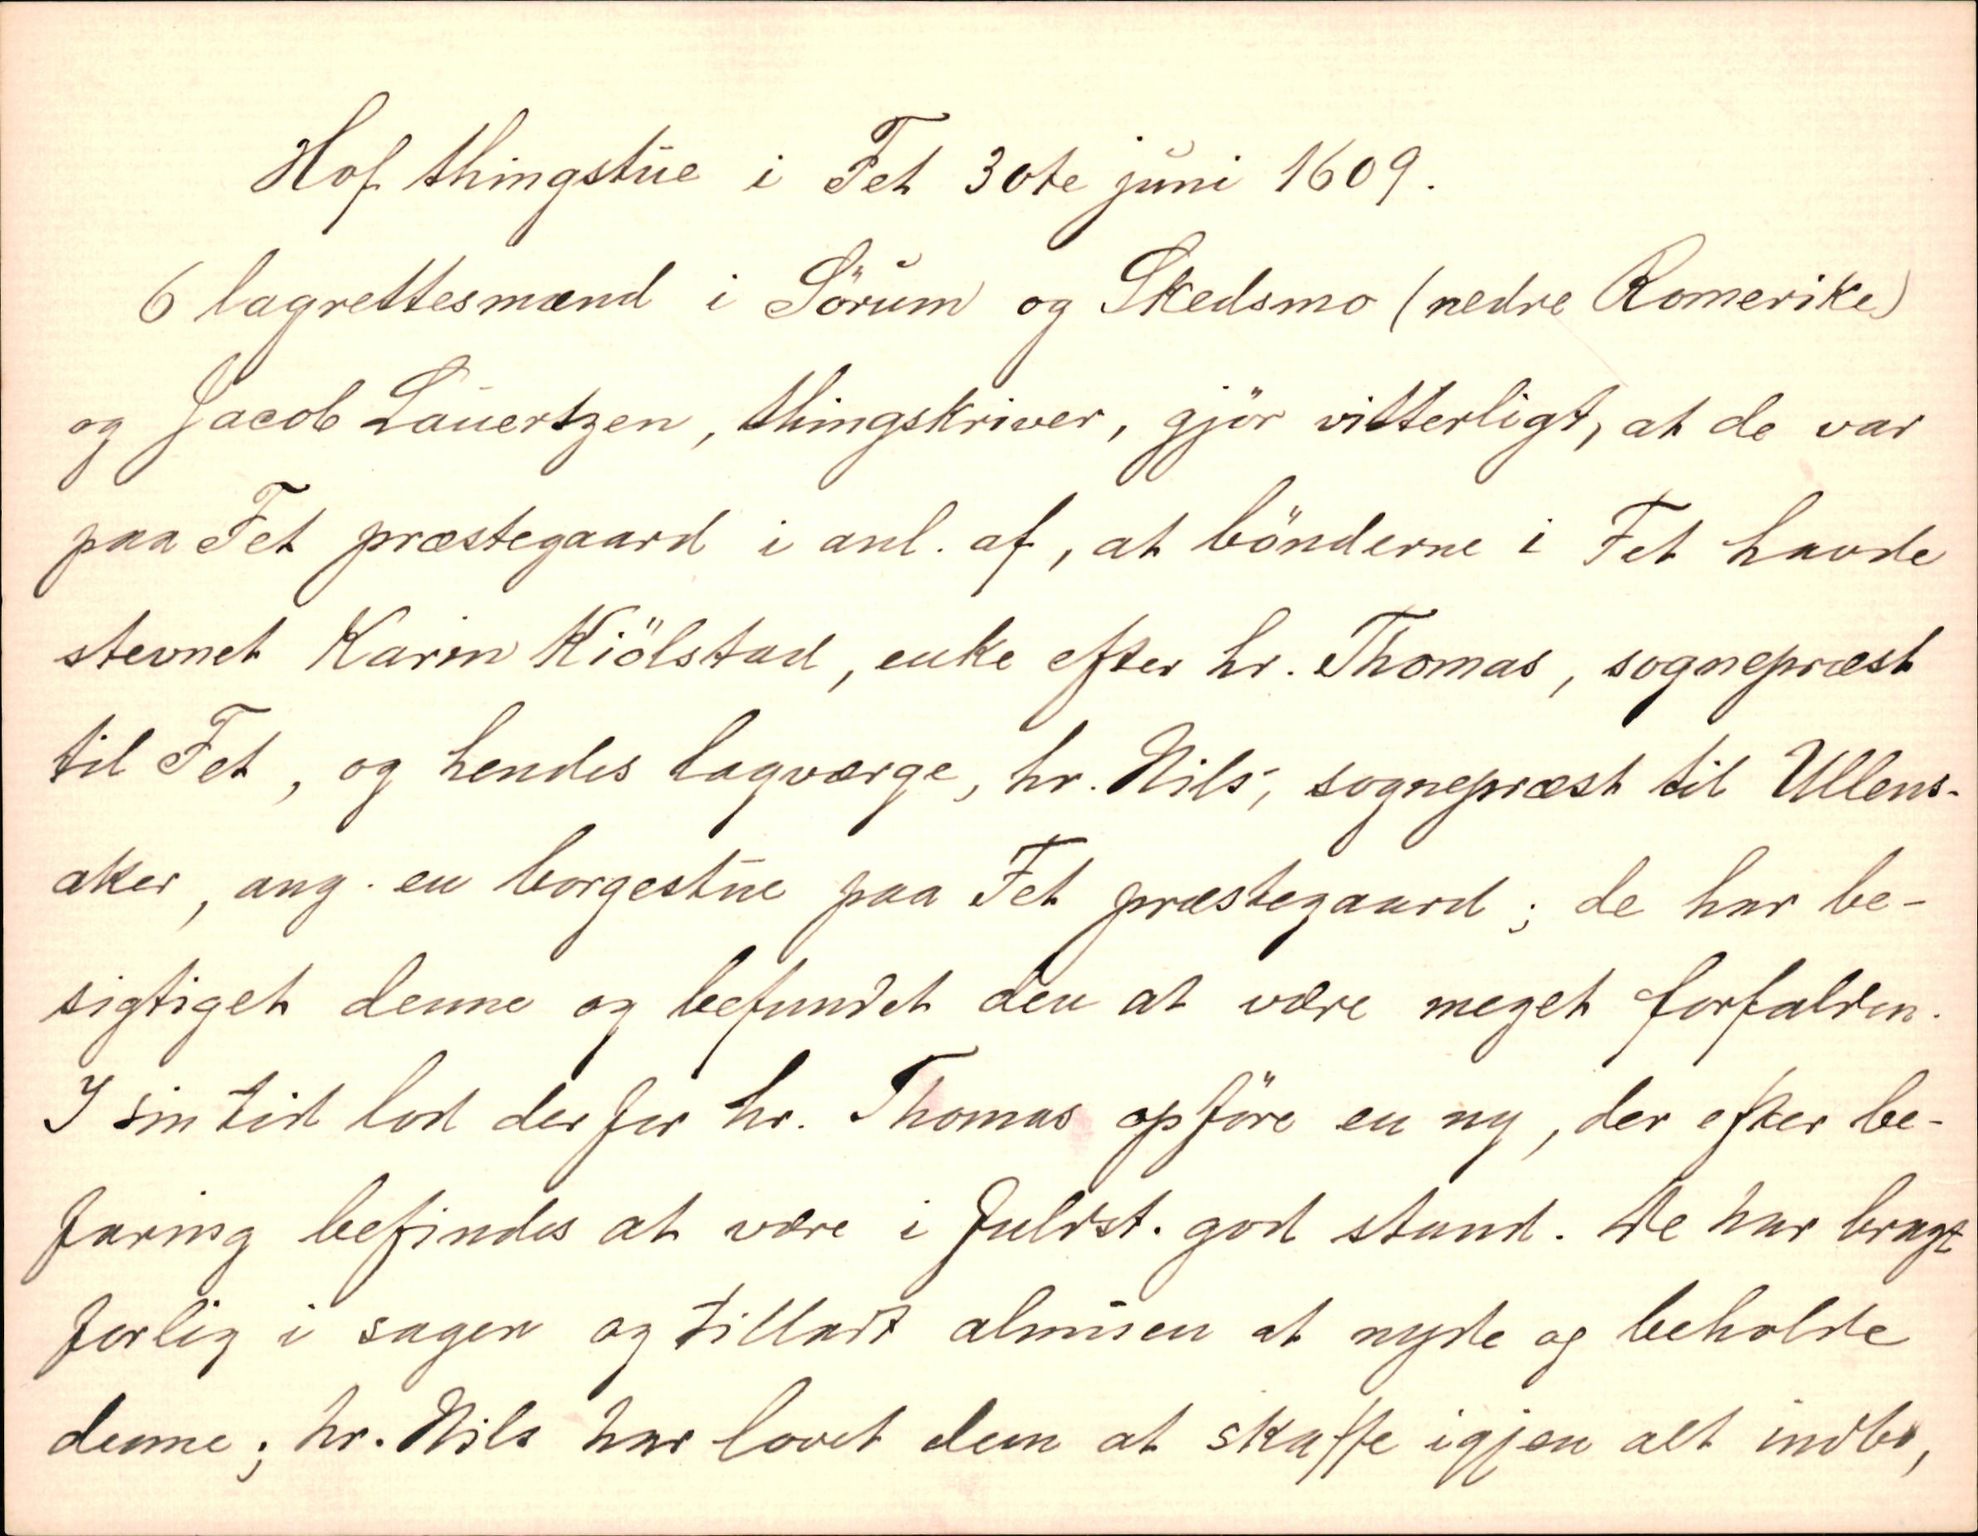 Hof thingstue i Fet 30te juni 1609.
6 lagrettesmænd i Sörum og Skedsmo (nedre Romerike)
og Jacob Lauertzen, thingskriver, gjör vitterligt, at de var
paa Fet præstegaard i anl. af, at bönderne i Fet havde
stevnet Karin Kiölstad, enke efter hr. Thomas, sognepræst
til Fet, og hendes lagværge, hr. Nils, sognepræst til Ullens-
aker, ang. en borgestue paa Fet præstegaard; de har be-
sigtiget denne og befundet den at være meget forfalden.
I sin tid lod derfor hr. Thomas opföre en ny, der efter be-
faring befindes at være i fuldst. god stand. De har bragt
forlig i sagen og tilladt almuen at nyde og beholde
denne; hr. Nils har lovet dem at skaffe igjen alt indbo,